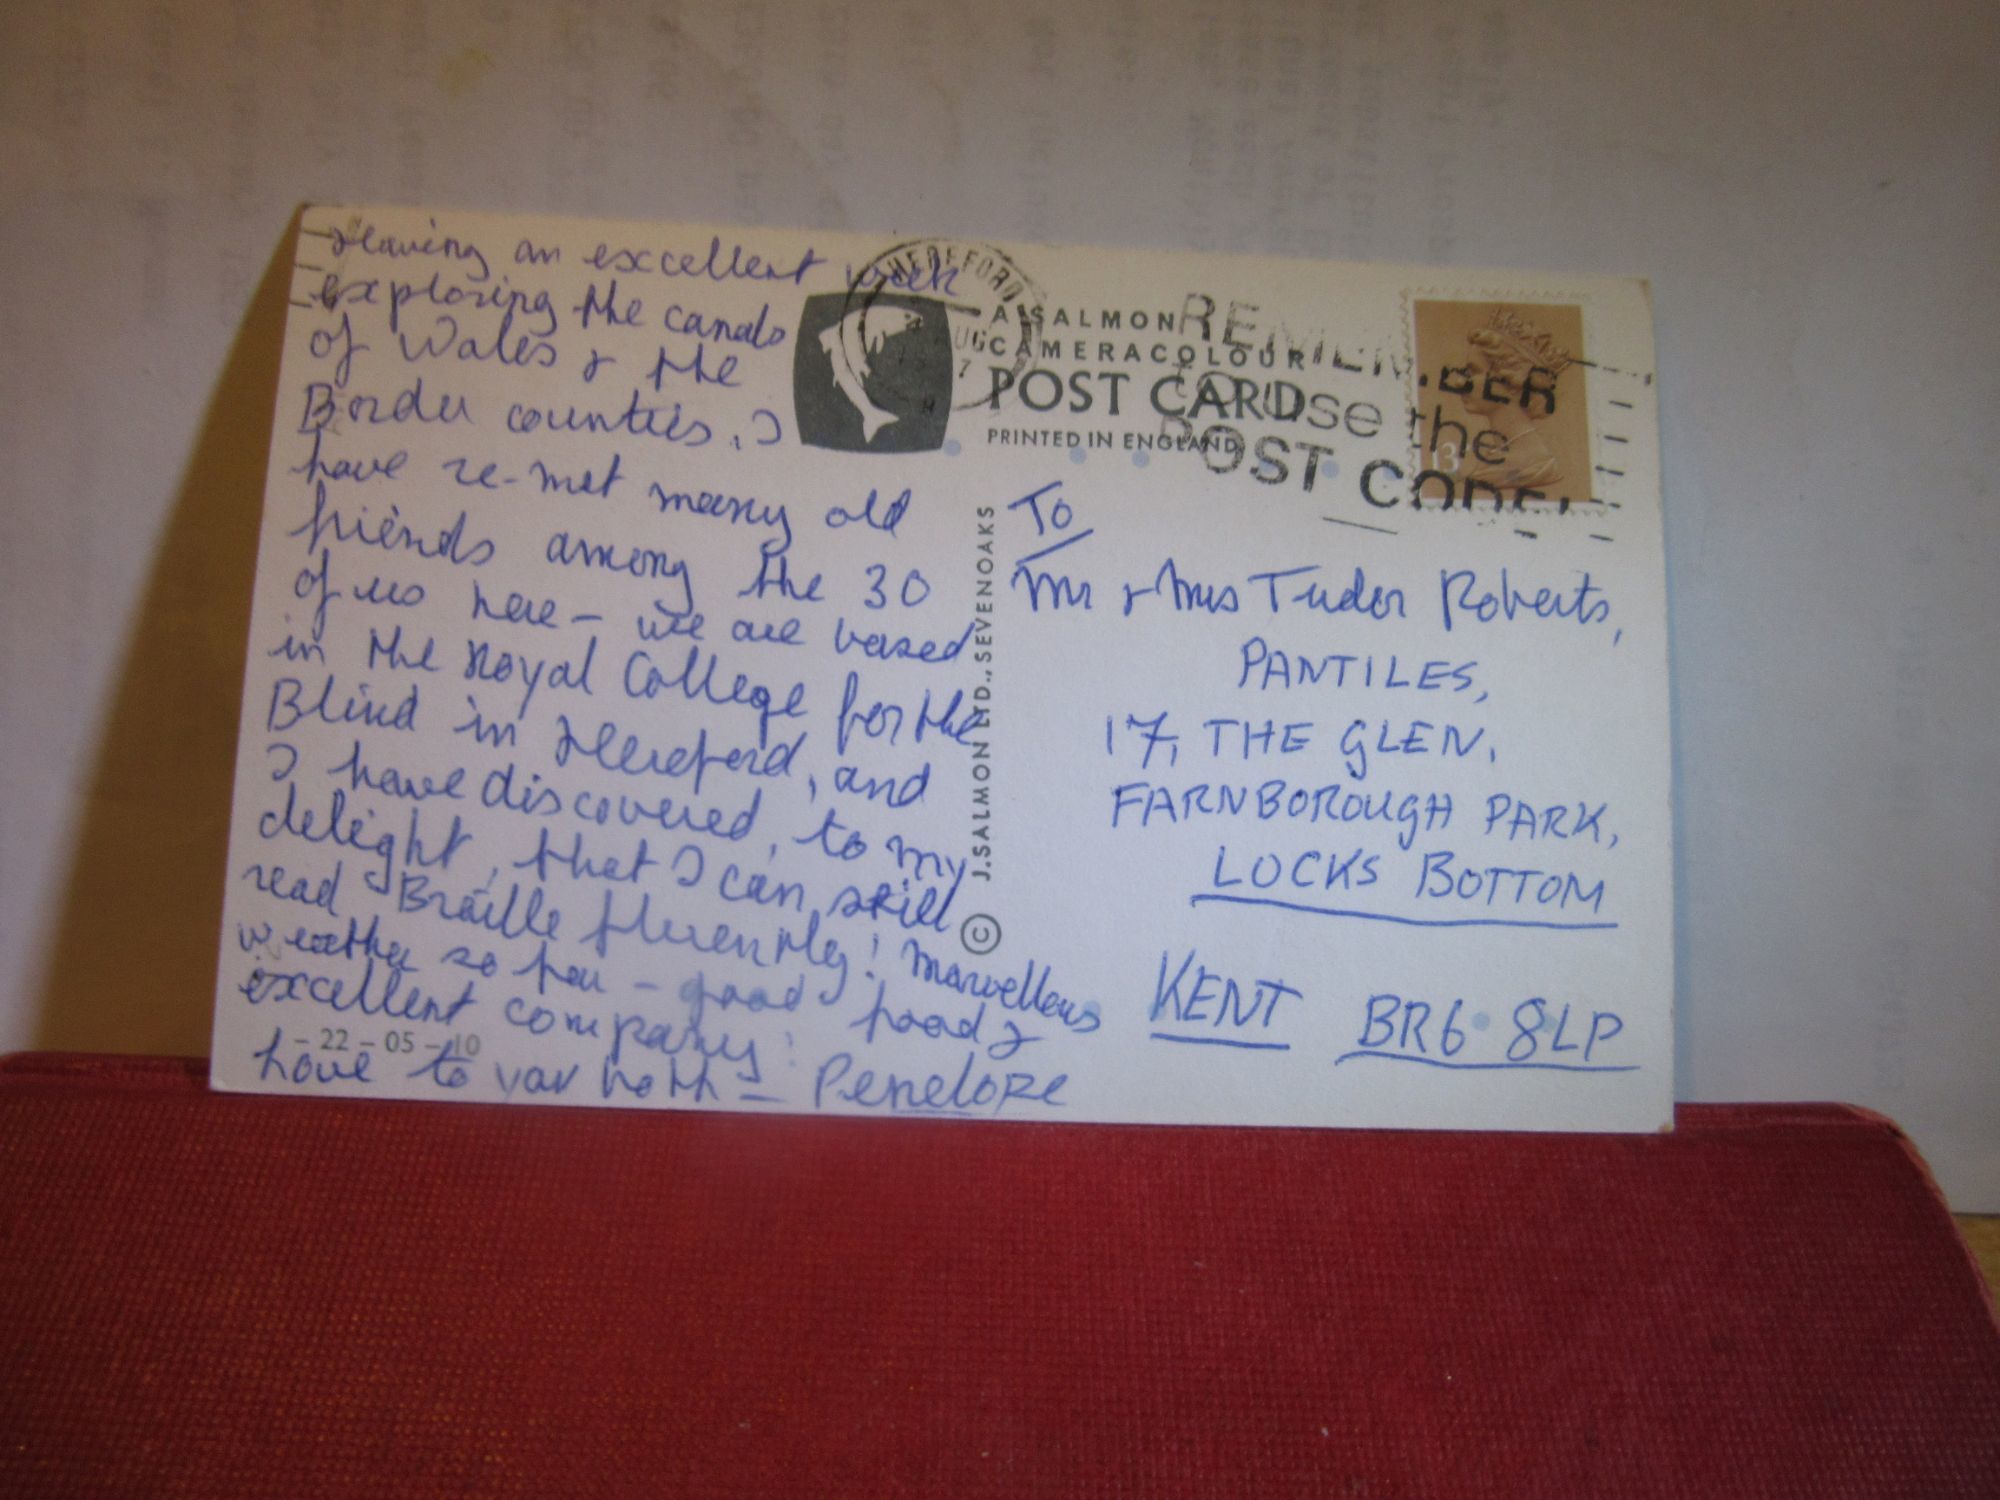 Having an excellent week
exploring the canals
of Wales & the
Border counties. I
have re-met many old
friends among the 30
of us here – we are based
in the Royal College for the
Blind in Hereford, and
I have discovered, to my
delight, that I can still
read Braille fluently! Marvellous
weather so far – good food &
excellent company!
love to you both – Penelope
- 22 - 05 - 10
HEREFORD
AUG
A SALMON
CAMERACOLOUR
POST CARD
PRINTED IN ENGLAND
REMEMBER
to use the
POST CODE
13
© J.SALMON LTD., SEVENOAKS
To
Mr & Mrs Tudor Roberts,
PANTILES,
17, THE GLEN,
FARNBOROUGH PARK,
LOCKS BOTTOM
KENT BR6 8LP